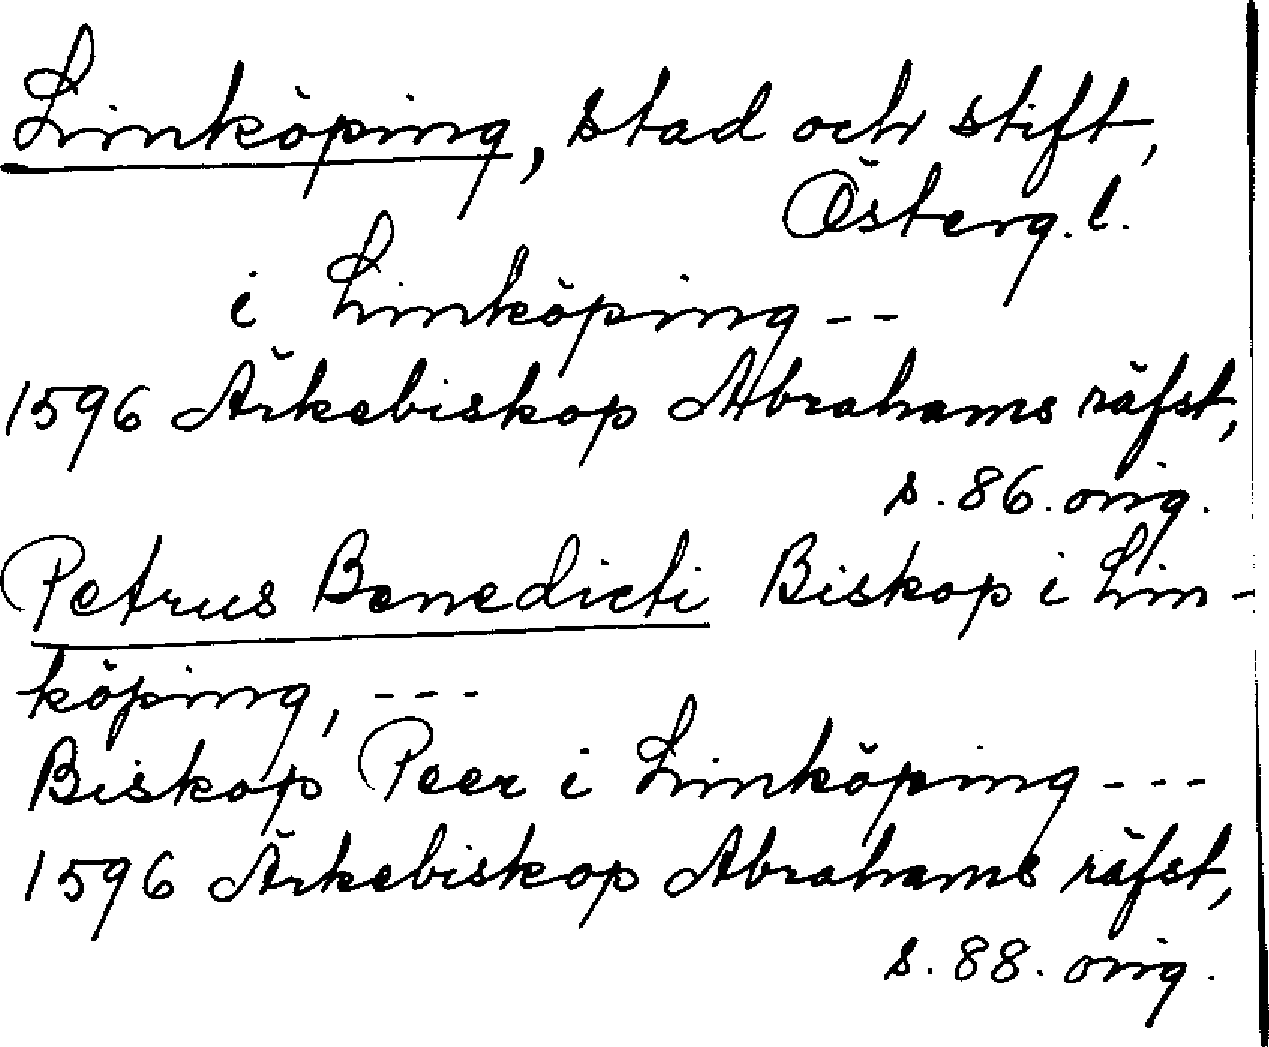 Linköping, stad och stift,
Österg. l.
i Linköping --
1596 Ärkebiskop Abrahams räfst,
s. 86. orig.
Petrus Benedicti Biskop i Lin-
köping, ---
Biskop Peer i Linköping ---
1596 Ärkebiskop Abrahams räfst,
s. 88. orig.